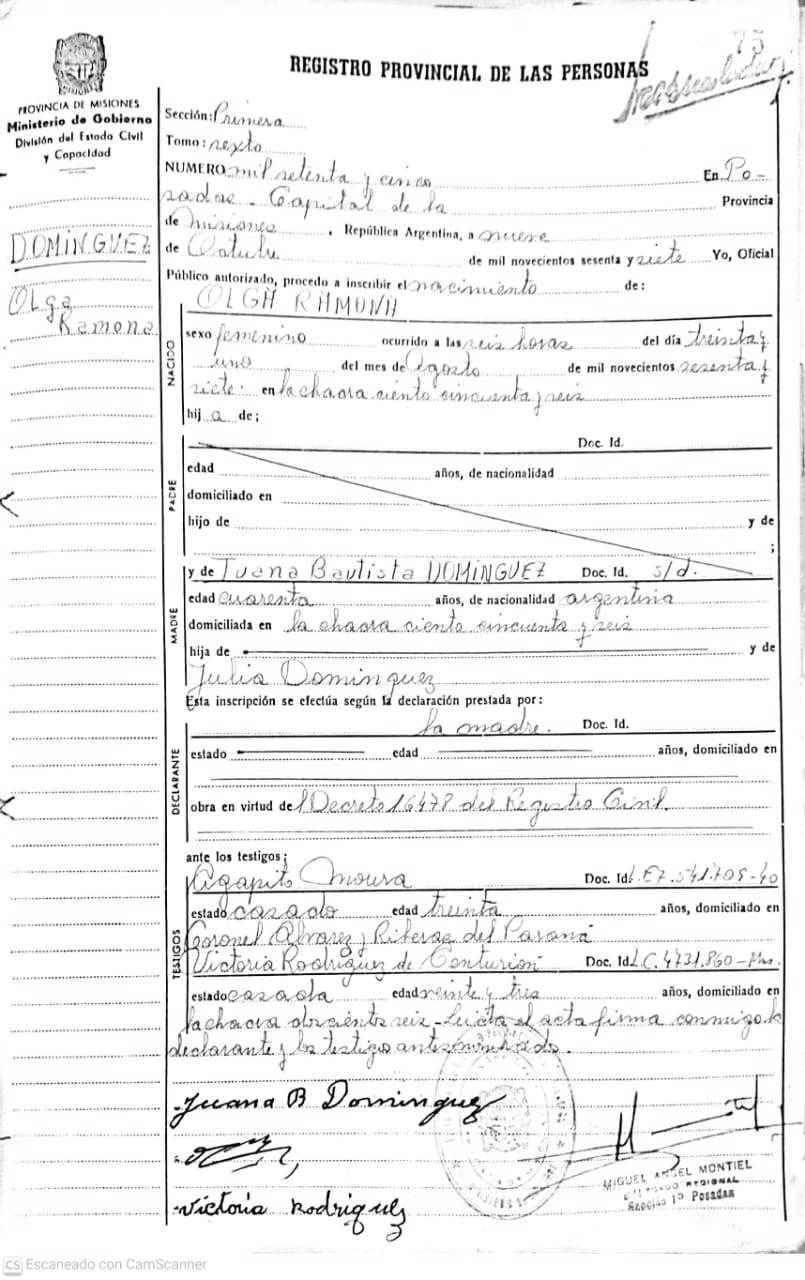 75
REGISTRO PROVINCIAL DE LAS PERSONAS
PROVINCIA DE MISIONES
Ministerio de Gobierno
División del Estado Civil
y Capacidad
DOMINGUEZ
Olga
Ramona
Sección: Primera
Tomo: sexto
NUMERO mil setenta y cinco En Po-
sadas - Capital de la Provincia
de Misiones, República Argentina, a nueve
de Octubre de mil novecientos sesenta y siete Yo, Oficial
Público autorizado, procedo a inscribir el nacimiento de:
OLGA RAMONA
NACIDO
sexo femenino ocurrido a las seis horas del día treinta y
uno del mes de Agosto de mil novecientos sesenta y
siete: en la chacra ciento cincuenta y seis
hij a de;
PADRE
Doc. Id.
edad años, de nacionalidad
domiciliado en
hijo de y de
;
MADRE
y de Juana Bautista DOMINGUEZ Doc. Id. s/d.
edad cuarenta años, de nacionalidad argentina
domiciliada en la chacra ciento cincuenta y seis
hija de y de
Julia Dominguez
Esta inscripción se efectúa según la declaración prestada por:
DECLARANTE
la madre. Doc. Id.
estado edad años, domiciliado en
obra en virtud de l Decreto 16478 del Registro Civil.
ante los testigos;
TESTIGOS
Agapito Moura Doc. Id. L.E 7.541.705-40
estado casado edad treinta años, domiciliado en
Coronel Alvarez y Riberas del Paraná
Victoria Rodriguez de Centurion Doc. Id. L.C. 4731.860 - Mns.
estado casada edad veinte y tres años, domiciliado en
la chacra doscientos seis - Leida el acta firma conmigo la
declarante y los testigos antes nombrado.
Juana B Dominguez
Victoria Rodriguez
MIGUEL ANGEL MONTIEL
DELEGADO REGIONAL
Sección 1ª Posadas
CS Escaneado con CamScanner